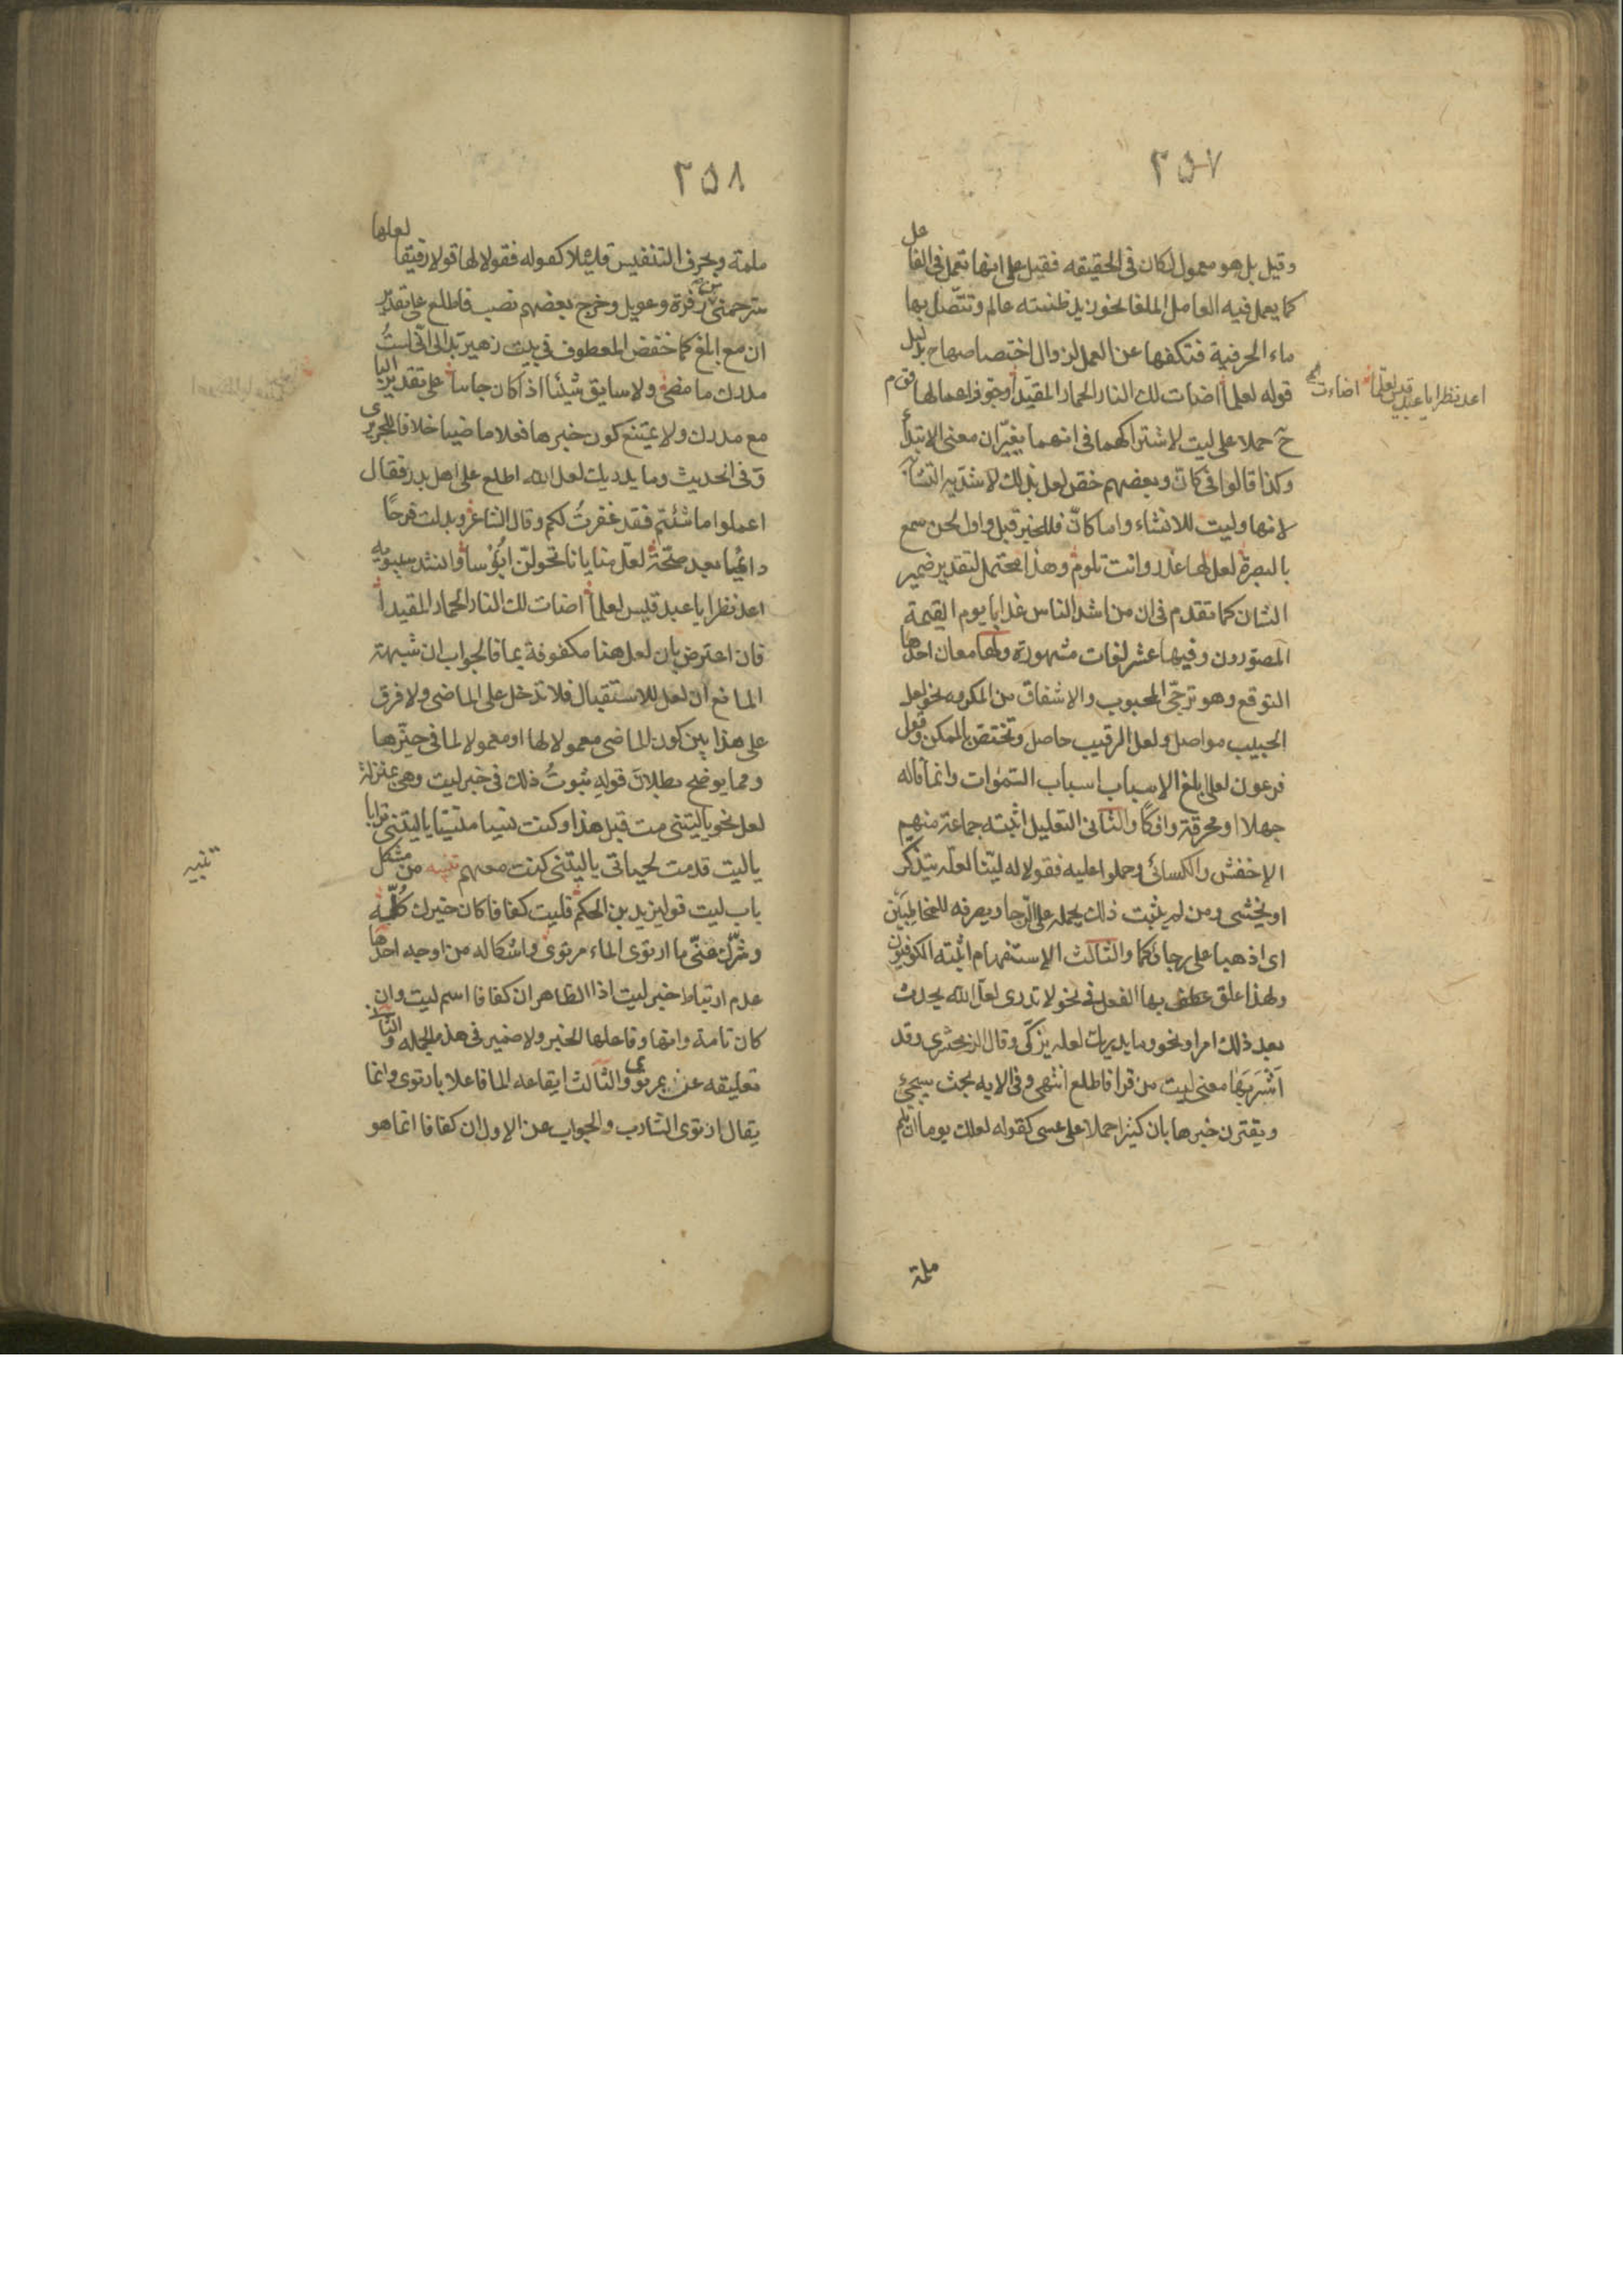 ٢٥٧
وقيل بل هو معمول لكان في الحقيقه فقيل على انها تعمل في الفاعل
كما يعمل فيه العامل الملغا نحو زيد ظننته عالم وتتصل بها
ماء الحرفية فتكفها عن العمل لزوال اختصاصها ح بدليل
قوله لعلما اضات لك النار الحمار المقيدا وجوز اهمالها قوم
اعد نظرا يا عبد قيس لعلما اضاءت الخ
ح حملا على ليت لاشتراكهما في انهما يغيران معنى الابتدأ
وكذا قالوا في كان وبعضهم خص لعل بذلك لاشدية التشابه
لانها وليت للانشاء واما كان فللخبر قيل واول لحن سمع
بالبصرة لعل لها عذر وانت تلوم وهذا محتمل لتقدير ضمير
الشان كما تقدم في ان من اشد الناس عذابا يوم القيمة
المصورون وفيها عشر لغات مشهورة ولها معان احدها
التوقع وهو ترجى المحبوب والاشفاق من المكروه نحو لعل
الحبيب مواصل ولعل الرقيب حاصل وتختص بالممكن وقول
فرعون لعلى ابلغ الاسباب اسباب السموات وانما قاله
جهلا او مخرقة وافكا والثاني التعليل اثبته جماعة منهم
الاخفش والكسائي وحملوا عليه فقولا له لينا لعله يتذكر
او يخشى ومن لم يثبت ذلك يحمله على الرجا ويصرفه للمخاطبين
اى اذهبا على رجائكما والثالث الاستفهام اثبته الكوفيون
ولهذا علق بها الفعل في نحو لا تدرى لعل الله يحدث
بعد ذلك امرا ونحو وما يدريك لعله يزكى وقال الزمخشرى وقد
اشربها معنى ليت من قرا فاطلع انتهى وفي الايه بحث سيجئ
ويقترن خبرها بان كثيرا حملا على عسى كقوله لعلك يوما ان تلم
ملمة
٢٥٨
ملمة وبحرف التنفيس قليلا كقوله فقولا لها قولا رقيقا لعلها
سترحمني من زفرة وعويل وخرج بعضهم نصب فاطلع على تقدير
ان مع ابلغ كما خفض المعطوف في بيت زهير بدا لى انى لست
مدرك ما مضى ولا سابق شيئا اذا كان جاسا على تقدير البا
مع مدرك ولا يمتنع كون خبرها فعلا ماضيا خلافا للحريرى
وفي الحديث وما يدريك لعل الله اطلع على اهل بدر فقال
اعملوا ما شئتم فقد غفرت لكم وقال الشاعر وبدلت قرحا
داميا بعد صحة لعل منايانا تحولن ابؤسا وانشد سيبويه
اعد نظرا يا عبد قيس لعلما اضات لك النار الحمار المقيدا
فان اعترض بان لعل هنا مكفوفة بما فالجواب ان شبهة
المانع ان لعل للاستقبال فلا تدخل على الماضى ولا فرق
على هذا بين كون الماضى معمولا لها او معمولا لما في حيزها
ومما يوضح بطلان قوله ثبوت ذلك في خبر ليت وهي بمنزلة
لعل نحو يا ليتنى مت قبل هذا وكنت نسيا منسيا يا ليتنى كنت ترابا
يا ليت قدمت لحياتى يا ليتنى كنت معهم تنبيه من مشكل
تنبيه
باب ليت قول يزيد بن الحكم فليت كفافا كان خيرك كله
وشرك عنى ما ارتوى الماء مرتوى واشكاله من اوجه احدها
عدم ارتباط خبر ليت اذ الظاهر ان كفافا اسم ليت وان
كان تامة وانها وفاعلها الخبر ولا ضمير في هذه الجمله والثانى
تعليقه عن بمرتوى والثالث ايقاعه الما فاعلا بارتوى وانما
يقال ارتوى الشارب والجواب عن الاول ان كفافا انما هو